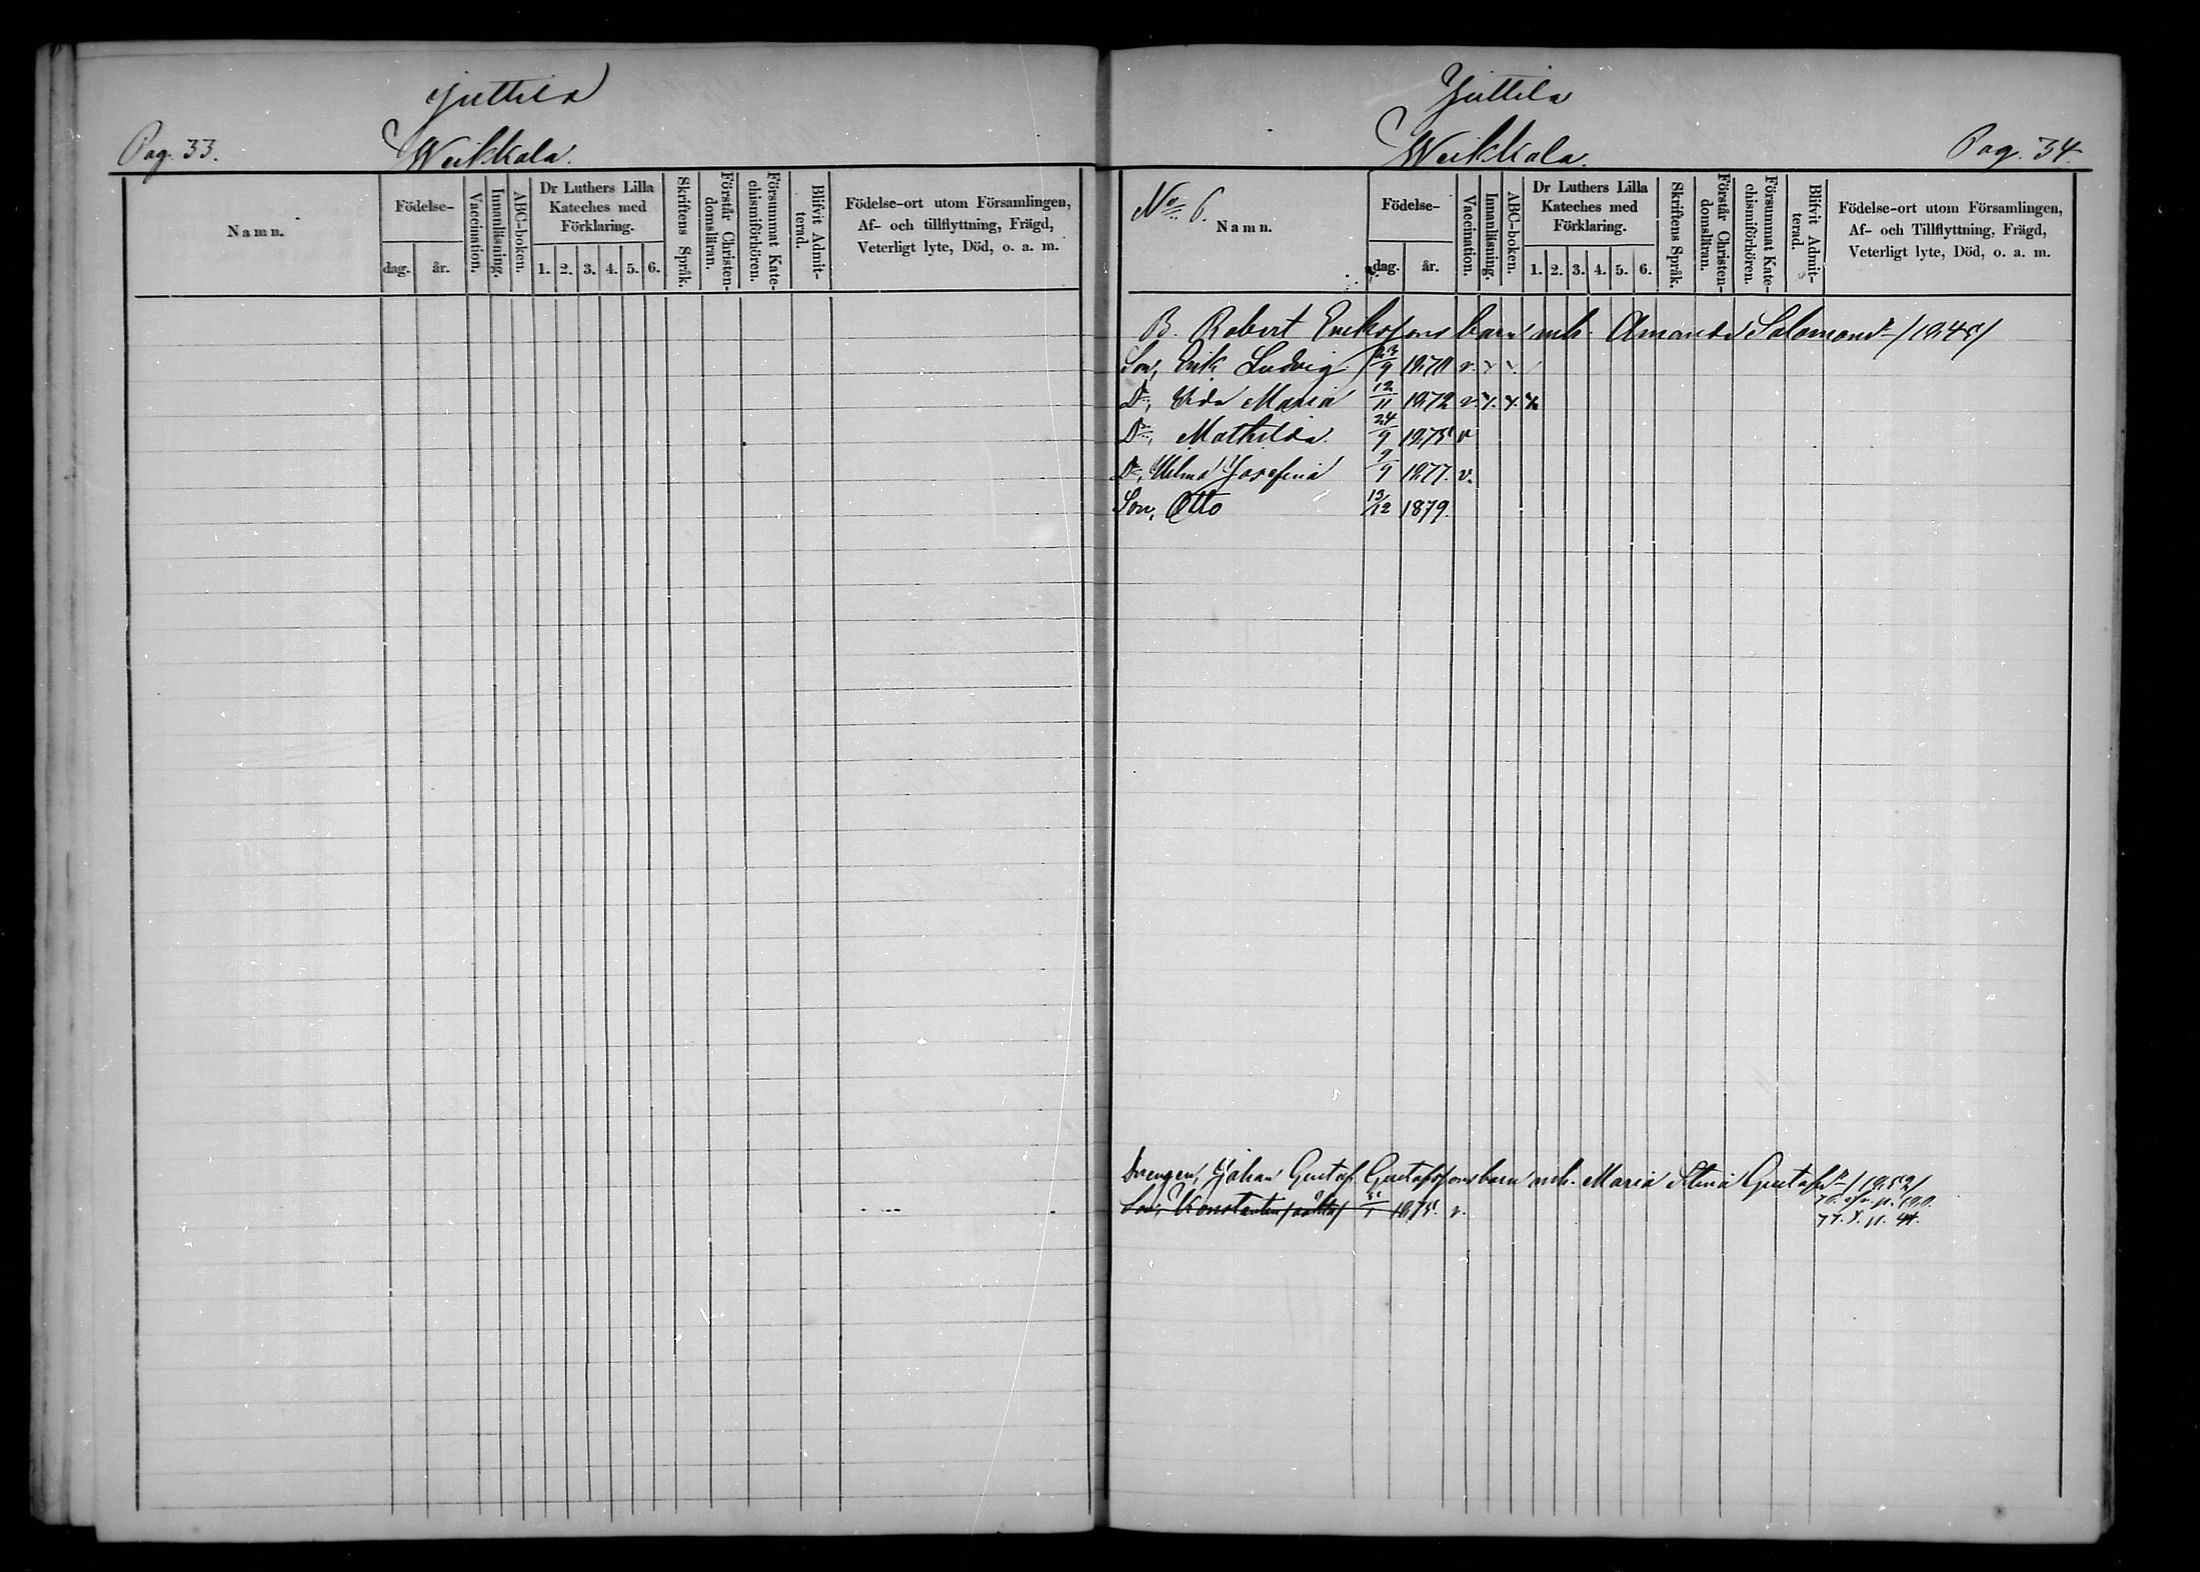 Juttila
Pag. 33. Weikkala.
Namn.
Födelse-
dag. år.
Vaccination.
Innanläsning.
ABC-boken.
Dr Luthers Lilla
Kateches med
Förklaring.
1. 2. 3. 4. 5. 6.
Skriftens Språk.
Förstår Christen-
domsläran.
Försummat Kate-
chismiförhören.
Blifvit Admit-
terad.
Födelse-ort utom Församlingen,
Af- och tillflyttning, Frägd,
Veterligt lyte, Död, o. a. m.
Juttila
Weikkala. Pag. 34.
No 6.
Namn.
Födelse-
dag. år.
Vaccination.
Innanläsning.
ABC-boken.
Dr Luthers Lilla
Kateches med
Förklaring.
1. 2. 3. 4. 5. 6.
Skriftens Språk.
Förstår Christen-
domsläran.
Försummat Kate-
chismiförhören.
Blifvit Admit-
terad.
Födelse-ort utom Församlingen,
Af- och Tillflyttning, Frägd,
Veterligt lyte, Död, o. a. m.
B. Robert Erikssons barn m. h. Amanda Salomonsdr
Son, Erik Ludvig 23/9 1870 v.
Dr, Ida Maria 12/11 1872 v.
Dr, Mathilda 24/9 1875 v
Dr, Wilma Josefina 9/9 1877. v.
Son, Otto 13/12 1879.
Drengen, Johan Gustaf Gustafssons barn m. h. Maria Stina Gustafsdr /1852/
Son, Konstantin 1875. v.
77. p. 44.